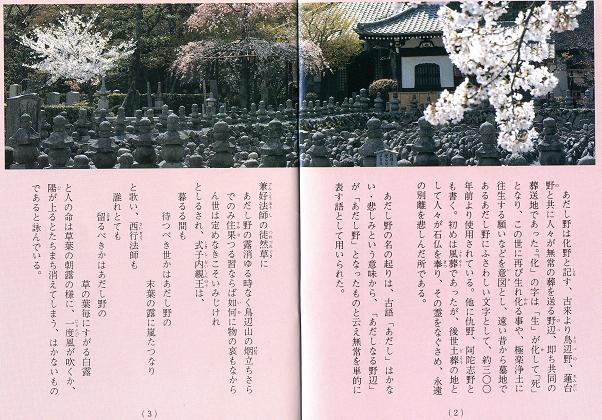 あだし野は化野と記す、古来より鳥辺野、蓮台
野と共に人々が無常の葬を送る野辺、即ち共同の
葬送地であった。「化」の字は「生」が化して「死」
となり、この世に再び生れ化る事や、極楽浄土に
往生する願いなどを意図とし、遠い昔から墓地で
あるあだし野にふさわしい文字として、約三〇〇
年前より使用されている。他に仇野、阿陀志野と
も書く。初めは風葬であったが、後世土葬の地と
して人々が石仏を奉り、その霊をなぐさめ、永遠
の別離を悲しんだ所である。
あだし野の名の起りは、古語「あだし」はかな
い・悲しみという意味から、「あだしなる野辺」
が「あだし野」となったものと云え無常を単的に
表す語として用いられた。
(2)
兼好法師の徒然草に
あだし野の露消ゆる時なく鳥辺山の烟立ちさら
でのみ住果つる習ならば如何に物の哀もなから
ん世は定めなきこそいみじけれ
としるされ、式子内親王は、
暮るる間も
待つべき世かはあだし野の
末葉の露に嵐たつなり
と歌い、西行法師も
誰れとても
留るべきかはあだし野の
草の葉毎にすがる白露
と人の命は草葉の朝露の様に、一度風が吹くか、
陽が上るとたちまち消えてしまう、はかないもの
であると詠んでいる。
(3)